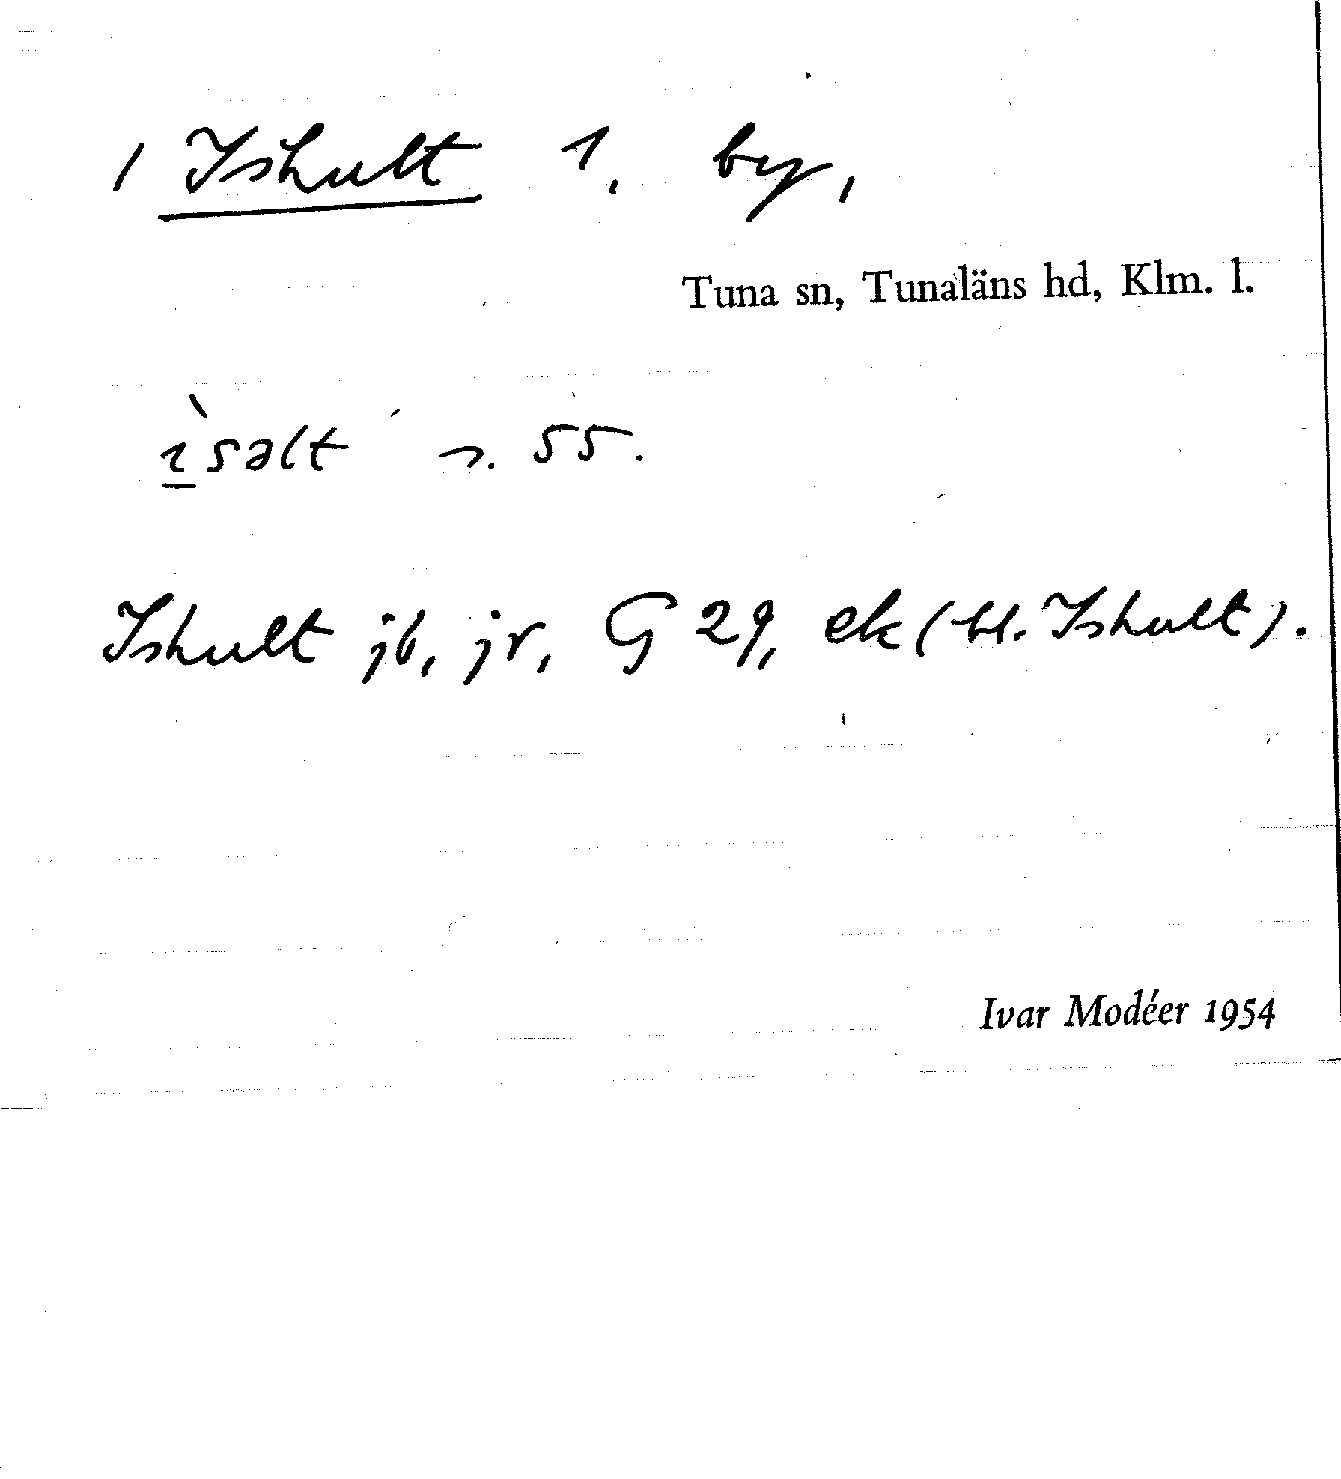 / Ishult 1. by,
Tuna sn, Tunaläns hd, Klm. l.
ı̀səlt 55.
Ishult jb, jr, G 29, ek (bl. Ishult).
Ivar Modéer 1954